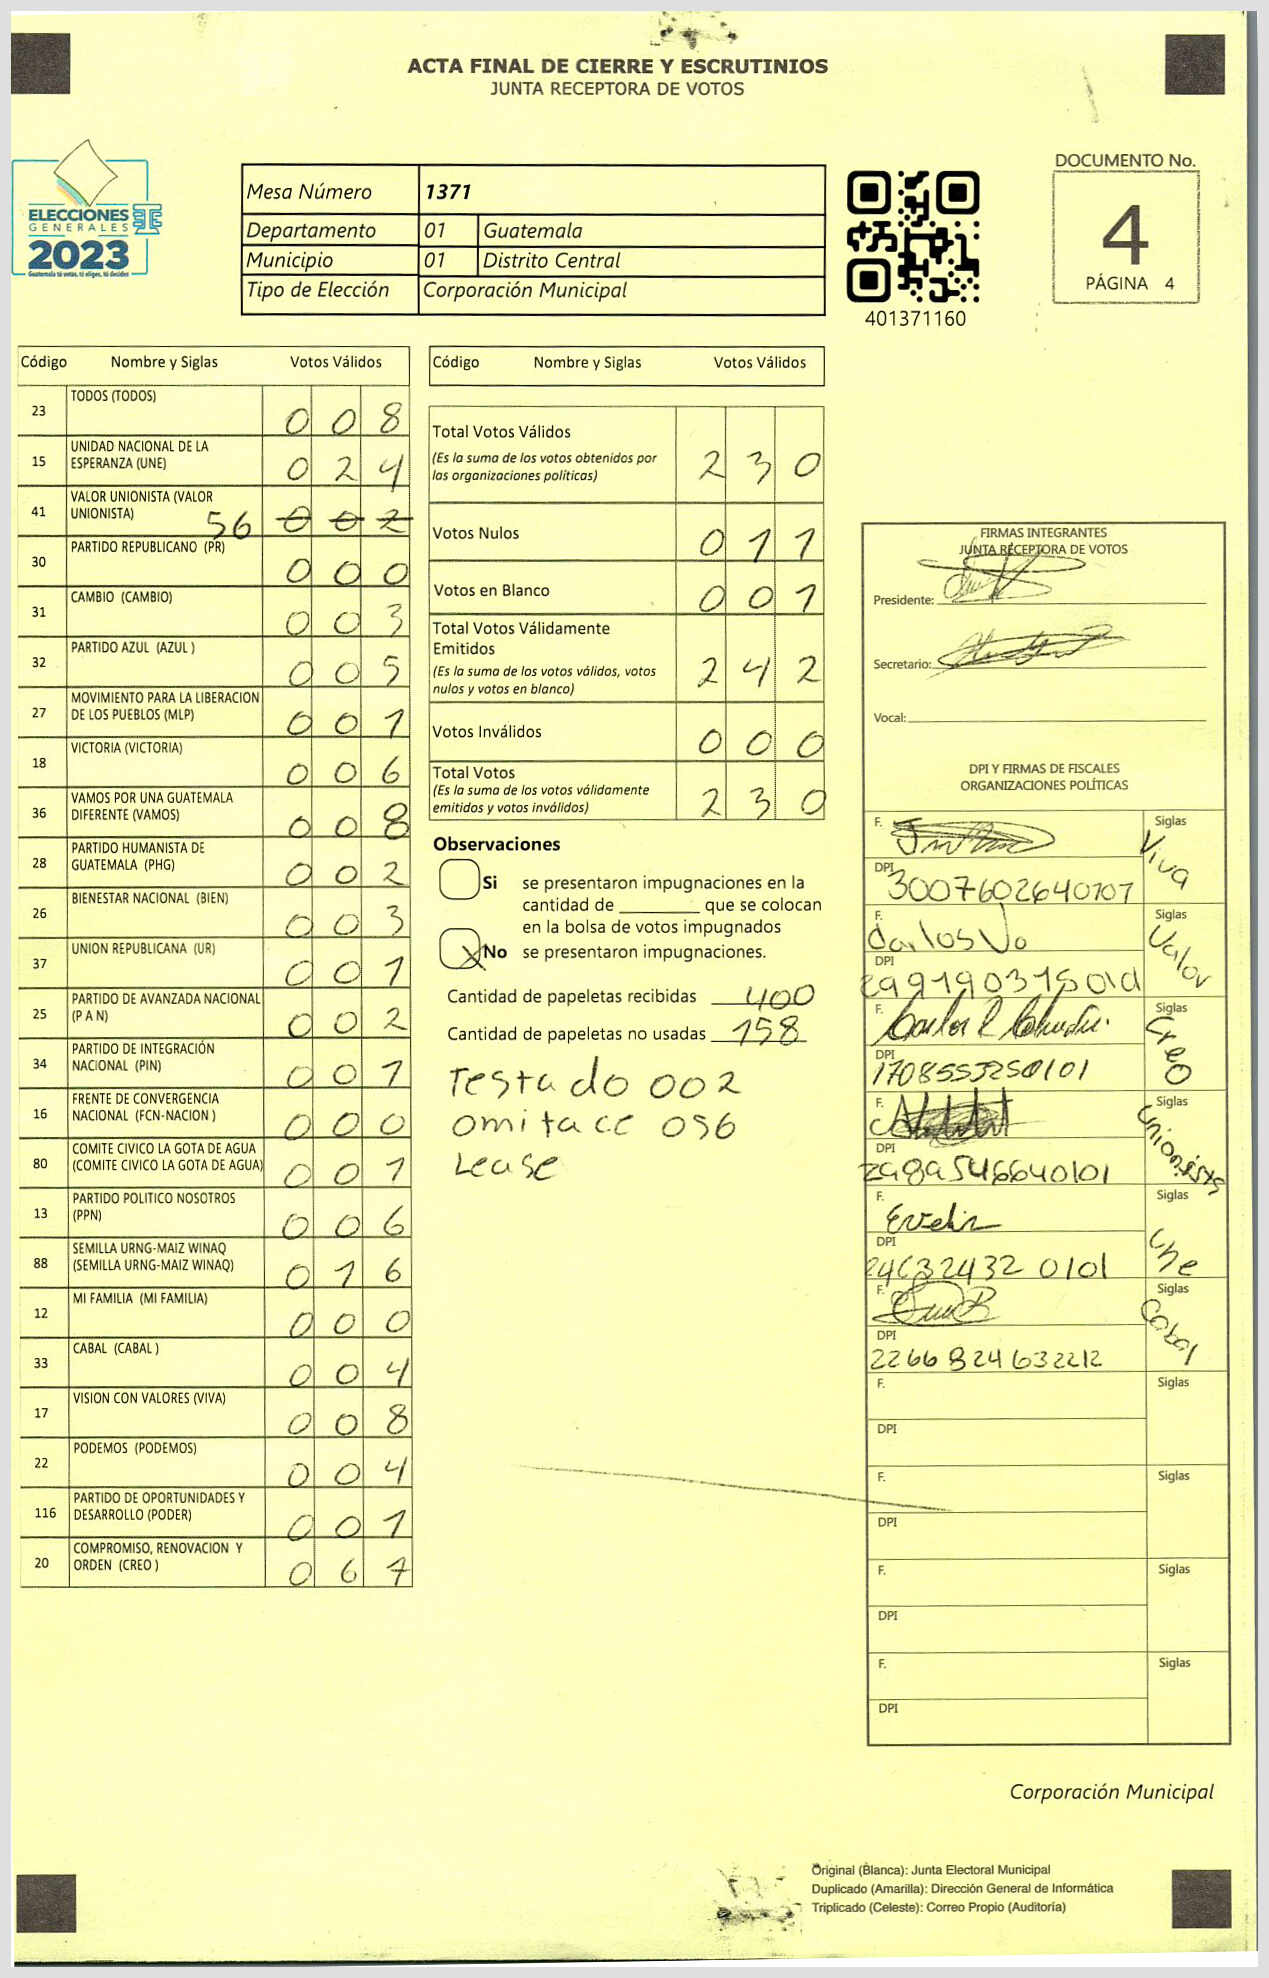 ACTA FINAL DE CIERRE Y ESCRUTINIOS
JUNTA RECEPTORA DE VOTOS
ELECCIONES
GENERALES
2023
Guatemala tú votas, tú eliges, tú decides
Mesa Número 1371
Departamento 01 Guatemala
Municipio 01 Distrito Central
Tipo de Elección Corporación Municipal
401371160
DOCUMENTO No.
4
PÁGINA 4
Código Nombre y Siglas Votos Válidos
23 TODOS (TODOS) 0 0 8
15 UNIDAD NACIONAL DE LA ESPERANZA (UNE) 0 2 4
41 VALOR UNIONISTA (VALOR UNIONISTA) 56 0 0 2
30 PARTIDO REPUBLICANO (PR) 0 0 0
31 CAMBIO (CAMBIO) 0 0 3
32 PARTIDO AZUL (AZUL ) 0 0 5
27 MOVIMIENTO PARA LA LIBERACION DE LOS PUEBLOS (MLP) 0 0 1
18 VICTORIA (VICTORIA) 0 0 6
36 VAMOS POR UNA GUATEMALA DIFERENTE (VAMOS) 0 0 8
28 PARTIDO HUMANISTA DE GUATEMALA (PHG) 0 0 2
26 BIENESTAR NACIONAL (BIEN) 0 0 3
37 UNION REPUBLICANA (UR) 0 0 1
25 PARTIDO DE AVANZADA NACIONAL (P A N) 0 0 2
34 PARTIDO DE INTEGRACIÓN NACIONAL (PIN) 0 0 1
16 FRENTE DE CONVERGENCIA NACIONAL (FCN-NACION ) 0 0 0
80 COMITE CIVICO LA GOTA DE AGUA (COMITE CIVICO LA GOTA DE AGUA) 0 0 1
13 PARTIDO POLITICO NOSOTROS (PPN) 0 0 6
88 SEMILLA URNG-MAIZ WINAQ (SEMILLA URNG-MAIZ WINAQ) 0 1 6
12 MI FAMILIA (MI FAMILIA) 0 0 0
33 CABAL (CABAL ) 0 0 4
17 VISION CON VALORES (VIVA) 0 0 8
22 PODEMOS (PODEMOS) 0 0 4
116 PARTIDO DE OPORTUNIDADES Y DESARROLLO (PODER) 0 0 1
20 COMPROMISO, RENOVACION Y ORDEN (CREO ) 0 6 7
Código Nombre y Siglas Votos Válidos
Total Votos Válidos 2 3 0
(Es la suma de los votos obtenidos por
las organizaciones políticas)
Votos Nulos 0 1 1
Votos en Blanco 0 0 1
Total Votos Válidamente
Emitidos 2 4 2
(Es la suma de los votos válidos, votos
nulos y votos en blanco)
Votos Inválidos 0 0 0
Total Votos 2 3 0
(Es la suma de los votos válidamente
emitidos y votos inválidos)
Observaciones
Si se presentaron impugnaciones en la
cantidad de ________ que se colocan
en la bolsa de votos impugnados
X No se presentaron impugnaciones.
Cantidad de papeletas recibidas 400
Cantidad de papeletas no usadas 158
Testado 002
omitace 056
Lease
FIRMAS INTEGRANTES
JUNTA RECEPTORA DE VOTOS
Presidente:
Secretario:
Vocal:
DPI Y FIRMAS DE FISCALES
ORGANIZACIONES POLÍTICAS
F. Siglas Viva
DPI 3007602640107
F. Carlos Siglas Valor
DPI
F. Siglas Creo
DPI 1708553250101
F. Siglas Unionista
DPI 2989546640101
F. Evelin Siglas Une
DPI 24632432 0101
F. Siglas Cabal
DPI 2266824632212
F. Siglas
DPI
F. Siglas
DPI
F. Siglas
DPI
F. Siglas
DPI
Corporación Municipal
Original (Blanca): Junta Electoral Municipal
Duplicado (Amarilla): Dirección General de Informática
Triplicado (Celeste): Correo Propio (Auditoría)